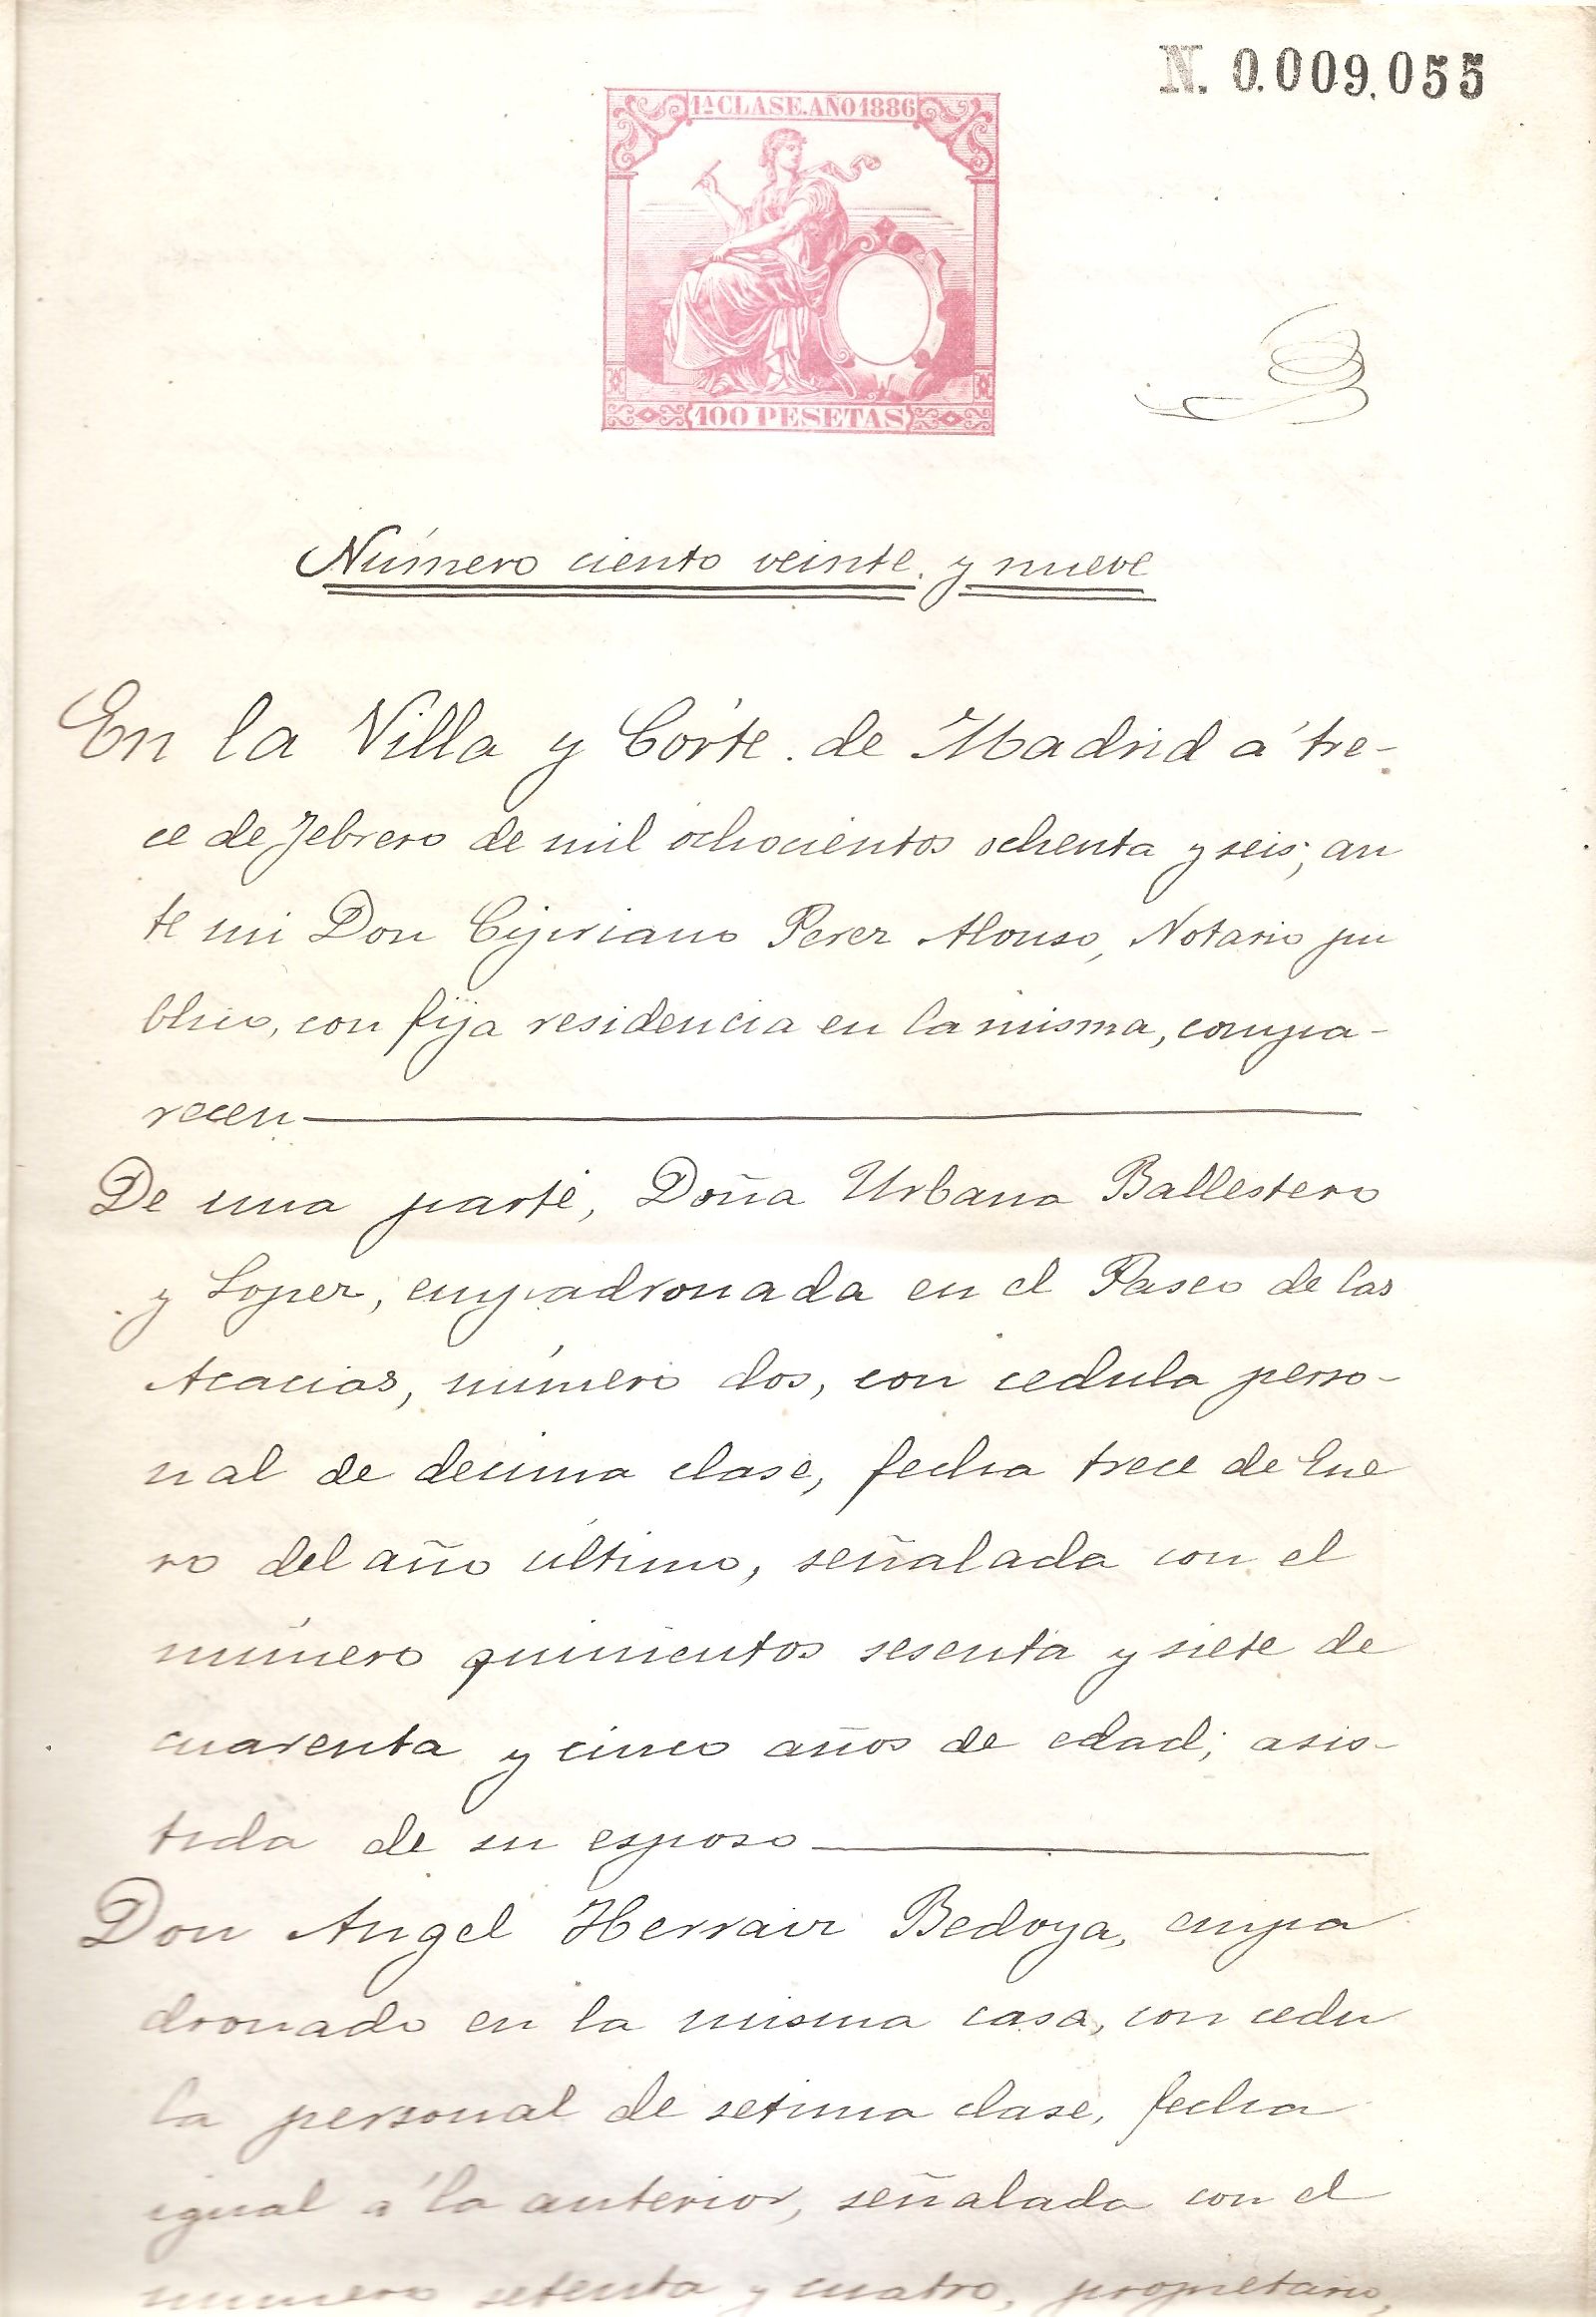 N. 0.009.055
1ª CLASE. AÑO 1886
100 PESETAS
Número ciento veinte y nueve
En la Villa y Córte de Madrid á tre-
ce de Febrero de mil ochocientos ochenta y seis; an
te mi Don Cipriano Perez Alonso, Notario pu
blico, con fija residencia en la misma, compa-
recen
De una parte, Doña Urbana Ballestero
y Lopez, empadronada en el Paseo de las
Acacias, número dos, con cedula perso-
nal de decima clase, fecha trece de Ene
ro del año último, señalada con el
número quinientos sesenta y siete de
cuarenta y cinco años de edad; asis-
tida de su esposo
Don Angel Herraiz Bedoya, empa
dronado en la misma casa, con cedu
la personal de setima clase, fecha
igual á la anterior, señalada con el
número setenta y cuatro, propietario,